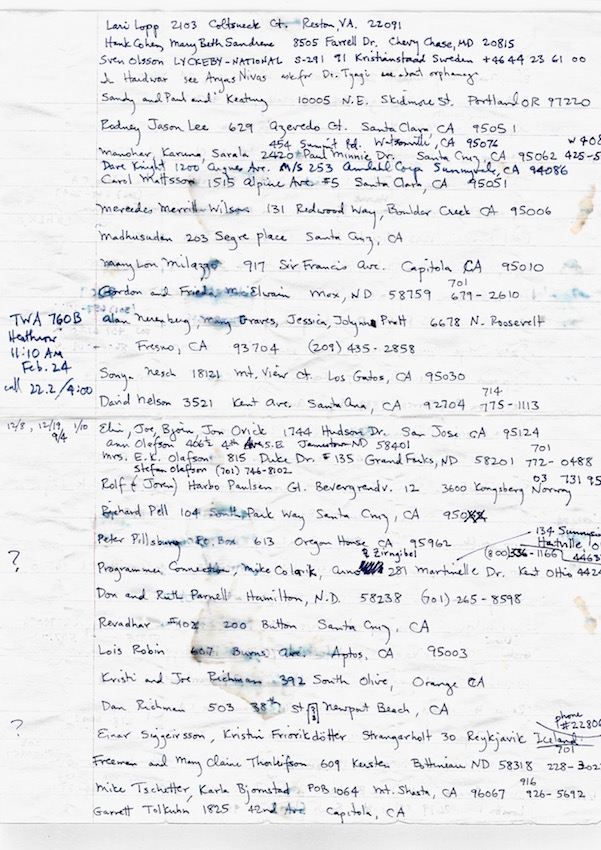 Lari Lopp 2103 Coltsneck Ct. Reston, VA. 22091
Hank Cohen, Mary Beth Sandrene 8505 Farrell Dr. Chevy Chase, MD 20815
Sven Olsson LYCKEBY-NATIONAL S-291 91 Kristianstad Sweden +46 44 23 61 00
In Hardwar see Aryas Nivas ask for Dr. Tyagi see about orphanage
Sandy and Paul Keating 10005 N.E. Skidmore St. Portland OR 97220
Rodney Jason Lee 629 Azevedo Ct. Santa Clara, CA 95051
454 Sunpit Rd. Watsonville, CA 95076 W 408
Manohar, Karuna, Sarala 2420 Paul Minnie Dr. Santa Cruz, CA 95062 425-5
Dave Knight 1200 Arques Ave. M/S 253 Amdahl Corp Sunnyvale, CA 94086
Carol Mattsson 1515 Alpine Ave #5 Santa Clara, CA 95051
Mercedes Merritt Wilson 131 Redwood Way, Boulder Creek CA 95006
Madhusudan 203 Segre place Santa Cruz, CA
Mary Lou Milazzo 917 Sir Francis Ave. Capitola CA 95010
Gordon and Frieda McElwain Max, ND 58759 701 679-2610
TWA 760B
Heathrow
11:10 AM
Feb. 24
call 22.2/4:00
Alan Nerenberg, Mary Graves, Jessica, Pratt 6678 N. Roosevelt
Fresno, CA 93704 (209) 435-2858
Sonya Nesch 18121 Mt. View Ct. Los Gatos, CA 95030
David Nelson 3521 Kent Ave. Santa Ana, CA 92704 714 775-1113
12/8, 12/19, 1/10
9/4
Elin, Joe, Bjorn, Jon Orick 1744 Hudson Dr. San Jose CA 95124
Ann Olafson 4th Ave S.E Jamestown ND 58401
Mrs. E.K. Olafson 815 Duke Dr. #135 Grand Forks, ND 58201 701 772-0488
Stefan Olafson (701) 746-8102
Rolf (& Joren) Harbo Paulsen Gl. Bevergrendv. 12 3600 Kongsberg Norway 03 731 95
Richard Pell 104 South Park Way Santa Cruz, CA 950XX
Peter Pillsbury P.O. Box 613 Oregon House CA 95962
134 Sunnyside
Hartville, O
4463
(800) 336-1166
& Zirngibel
?
Programmer Connection, Mike Colarik, 281 Martinelle Dr. Kent Ohio 4424
Don and Ruth Parnell Hamilton, N.D. 58238 (701) 265-8598
Revadhar #102 200 Button Santa Cruz, CA
Lois Robin 607 Burns Ave. Aptos, CA 95003
Kristi and Joe Richman 392 South Olive, Orange CA
Dan Richman 503 38th St Newport Beach, CA
phone
#22806
?
Einar Siggeirsson, Kristin Friorikdötter Stangarholt 30 Reykjavik Iceland
Freeman and Mary Claine Thorleifson 609 Kersten Bottineau ND 58318 701 228-302
Mike Tschetter, Karla Bjornstad POB 1064 Mt. Shasta, CA 96067 916 926-5692
Garrett Tolkuhn 1825 42nd Ave Capitola, CA